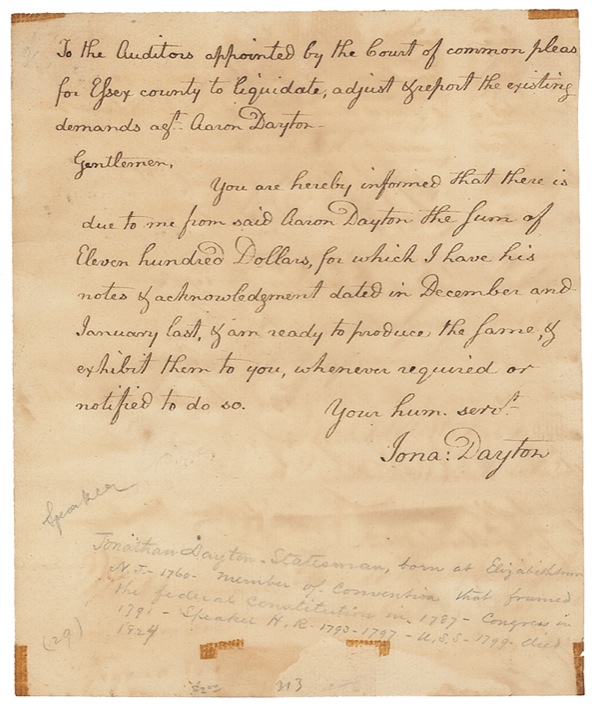 To the Auditors appointed by the Court of common pleas
for Essex county to liquidate, adjust & report the existing
demands agst. Aaron Dayton
Gentlemen,
You are hereby informed that there is
due to me from said Aaron Dayton the sum of
Eleven hundred Dollars, for which I have his
notes & acknowledgment dated in December and
January last, & am ready to produce the same, &
exhibit them to you, whenever required or
notified to do so.
Your hum. servt.
Jona: Dayton
Speaker
Jonathan Dayton - Statesman, born at Elizabethtown
N.J. - 1760 - member of Convention that framed
the federal Constitution in 1787 - Congress in
1791 - Speaker H.R. - 1793-1797 - U.S.S. - 1799. died
1824
(29)